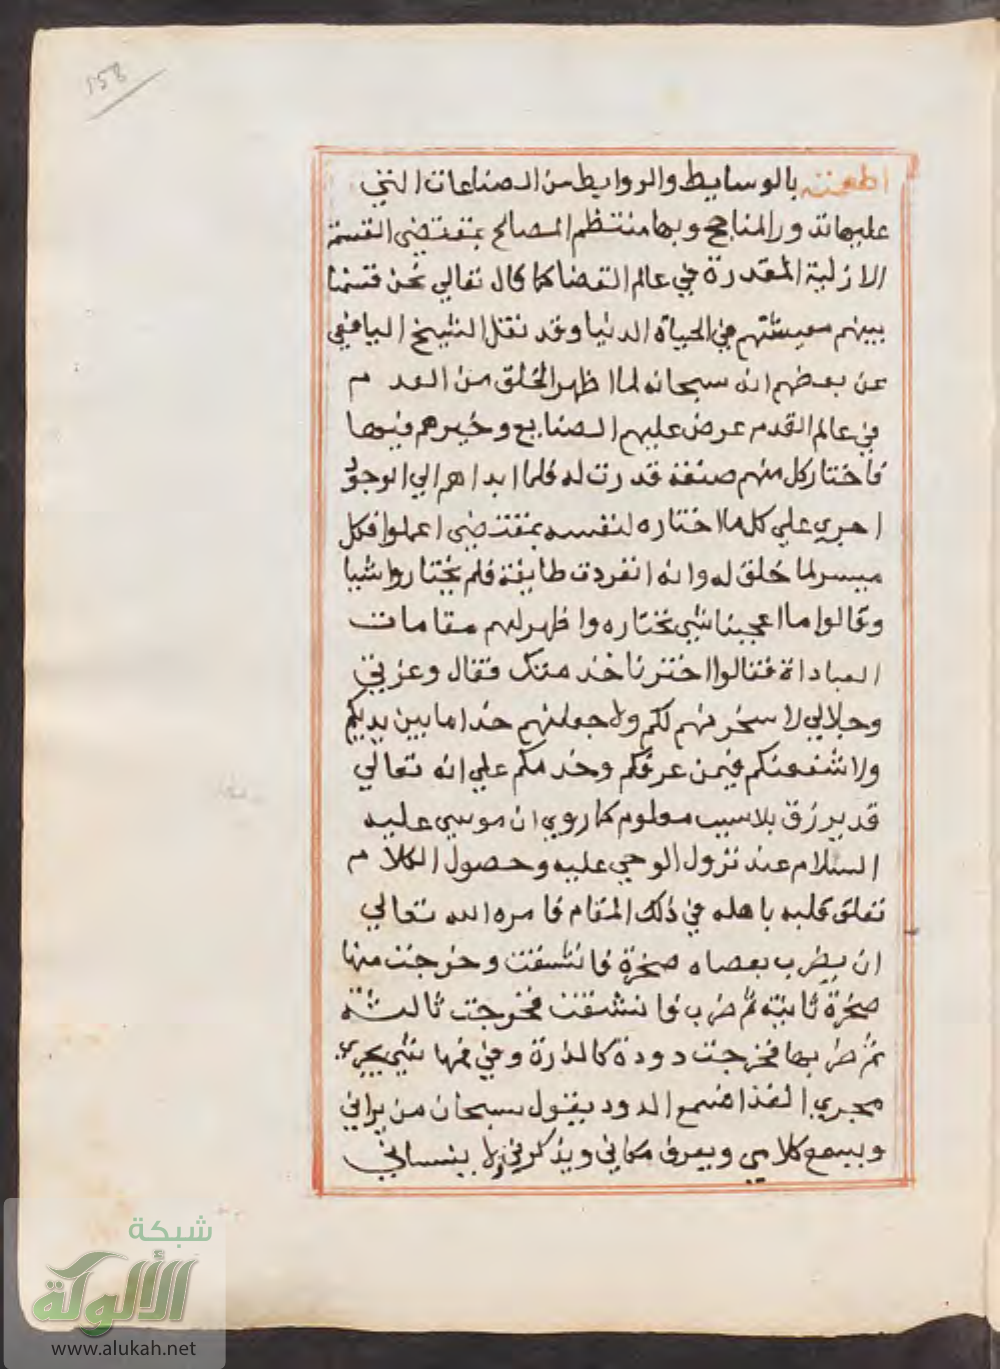 158
اطعمته بالوسايط والروابط من الصناعات التي
عليها تدور المناجح وبها منتظم المصالح بمقتضي القسمة
الازلية المقدرة في عالم القضا كما قال تعالي نحن قسمنا
بينهم معيشتهم في الحياة الدنيا وقد نقل الشيخ اليافعي
عن بعضهم انه سبحانه لما اظهر الخلق من العدم
في عالم القدم عرض عليهم الصنايع وخيرهم فيها
فاختار كل منهم صنعة قدرت له فلما ابداهم الي الوجود
اجري علي كل ما اختاره لنفسه بمقتضي اعملوا فكل
ميسر لما خلق له وانه انفردت طايفة فلم يختاروا شيا
وقالوا ما اعجبنا شي نختاره واظهر لهم مقامات
العباداة فقالوا اخترنا خدمتك فقال وعزتي
وجلالي لا سخرنهم لكم ولا جعلنهم خداما بين يديكم
ولا شفعنكم فيمن عرفكم وخدمكم علي انه تعالي
قد يرزق بلا سبب معلوم كما روي ان موسي عليه
السلام عند نزول الوحي عليه وحصول الكلام
تعلق قلبه باهله في ذلك المقام فامره الله تعالي
ان يضرب بعصاه صخرة فانشقت وخرجت منها
صخرة ثانية ثم ضرب فانشقت فخرجت ثالثة
ثم ضربها فخرجت دودة كالذرة وفي فمها شي يجري
مجري الغذا فسمع الدود يقول سبحان من يراني
ويسمع كلامي ويعرف مكاني ويذكرني ولا ينساني
شبكة
الألوكة
www.alukah.net